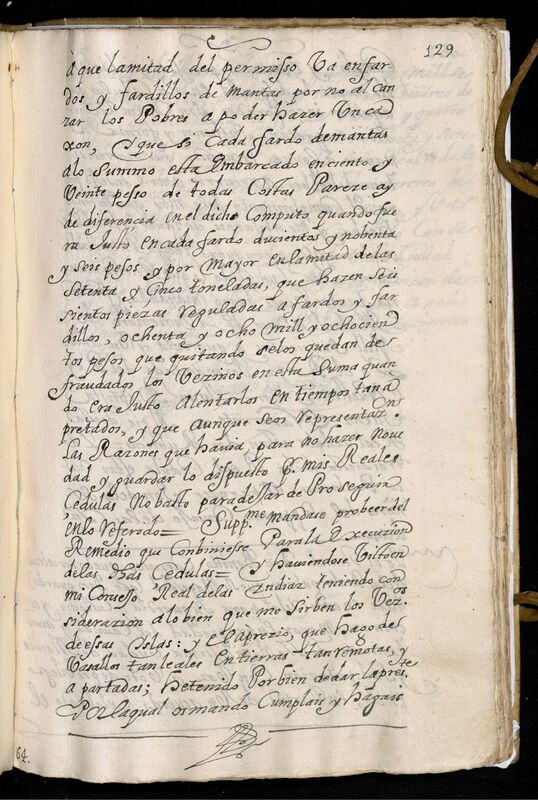 129
à que lamitad del permisso Va enfar
dos y fardillos de mantas por no alcan
zar los Pobres a poder hazer Vn ca
xon, y que si Cada fardo demantas
alo Summo esta Embarcado enciento y
Veinte pesso de todas Costas Pareze ay
de diferencia en el dicho Computo quando fue
ra Justo encada fardo ducientos y nobenta
y seis pesos y por Mayor en lamitad delas
setenta y Cinco toneladas, que hazen seis
sientos piezas reguladas a fardos y far
dillos, ochenta y ocho mill y ochocien
tos pesos que quitando selos quedan de
fraudados los Vezinos en esta Suma quan
do era Justo Alentarlos en tiempos tan a
pretados, y que aunque se os representaron
Las Razones que havia, para no hazer Nove
dad y guardar lo dispuesto pr. mis Reales
Cedulas No basto para dejar de Proseguir
en lo referido= Suppme. mandase probeer del
Remedio que Conbiniese Parala Execuzion
delas dhas Cedulas= y haviendose Visto en
mi Consejo Real delas Indias teniendo con
siderazion alo bien que me sirben los Vezos.
de essas Islas: y el aprezio, que hago de
Vasallos tan leales en tierras tan remotas, y
apartadas; hetenido Por bien de dar la preste.
Por laqual os mando Cumplais y hagais
64.